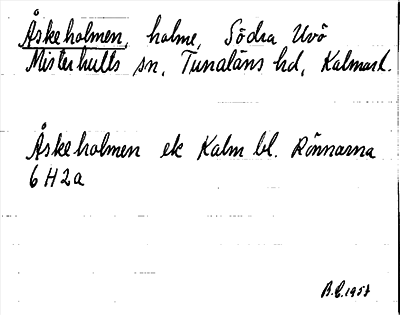 Åskeholmen, holme, Södra Uvö
Misterhults sn, Tunaläns hd, Kalmarl.
Åskeholmen ek Kalm bl. Rönnarna
6 H 2 a
B.E. 1958